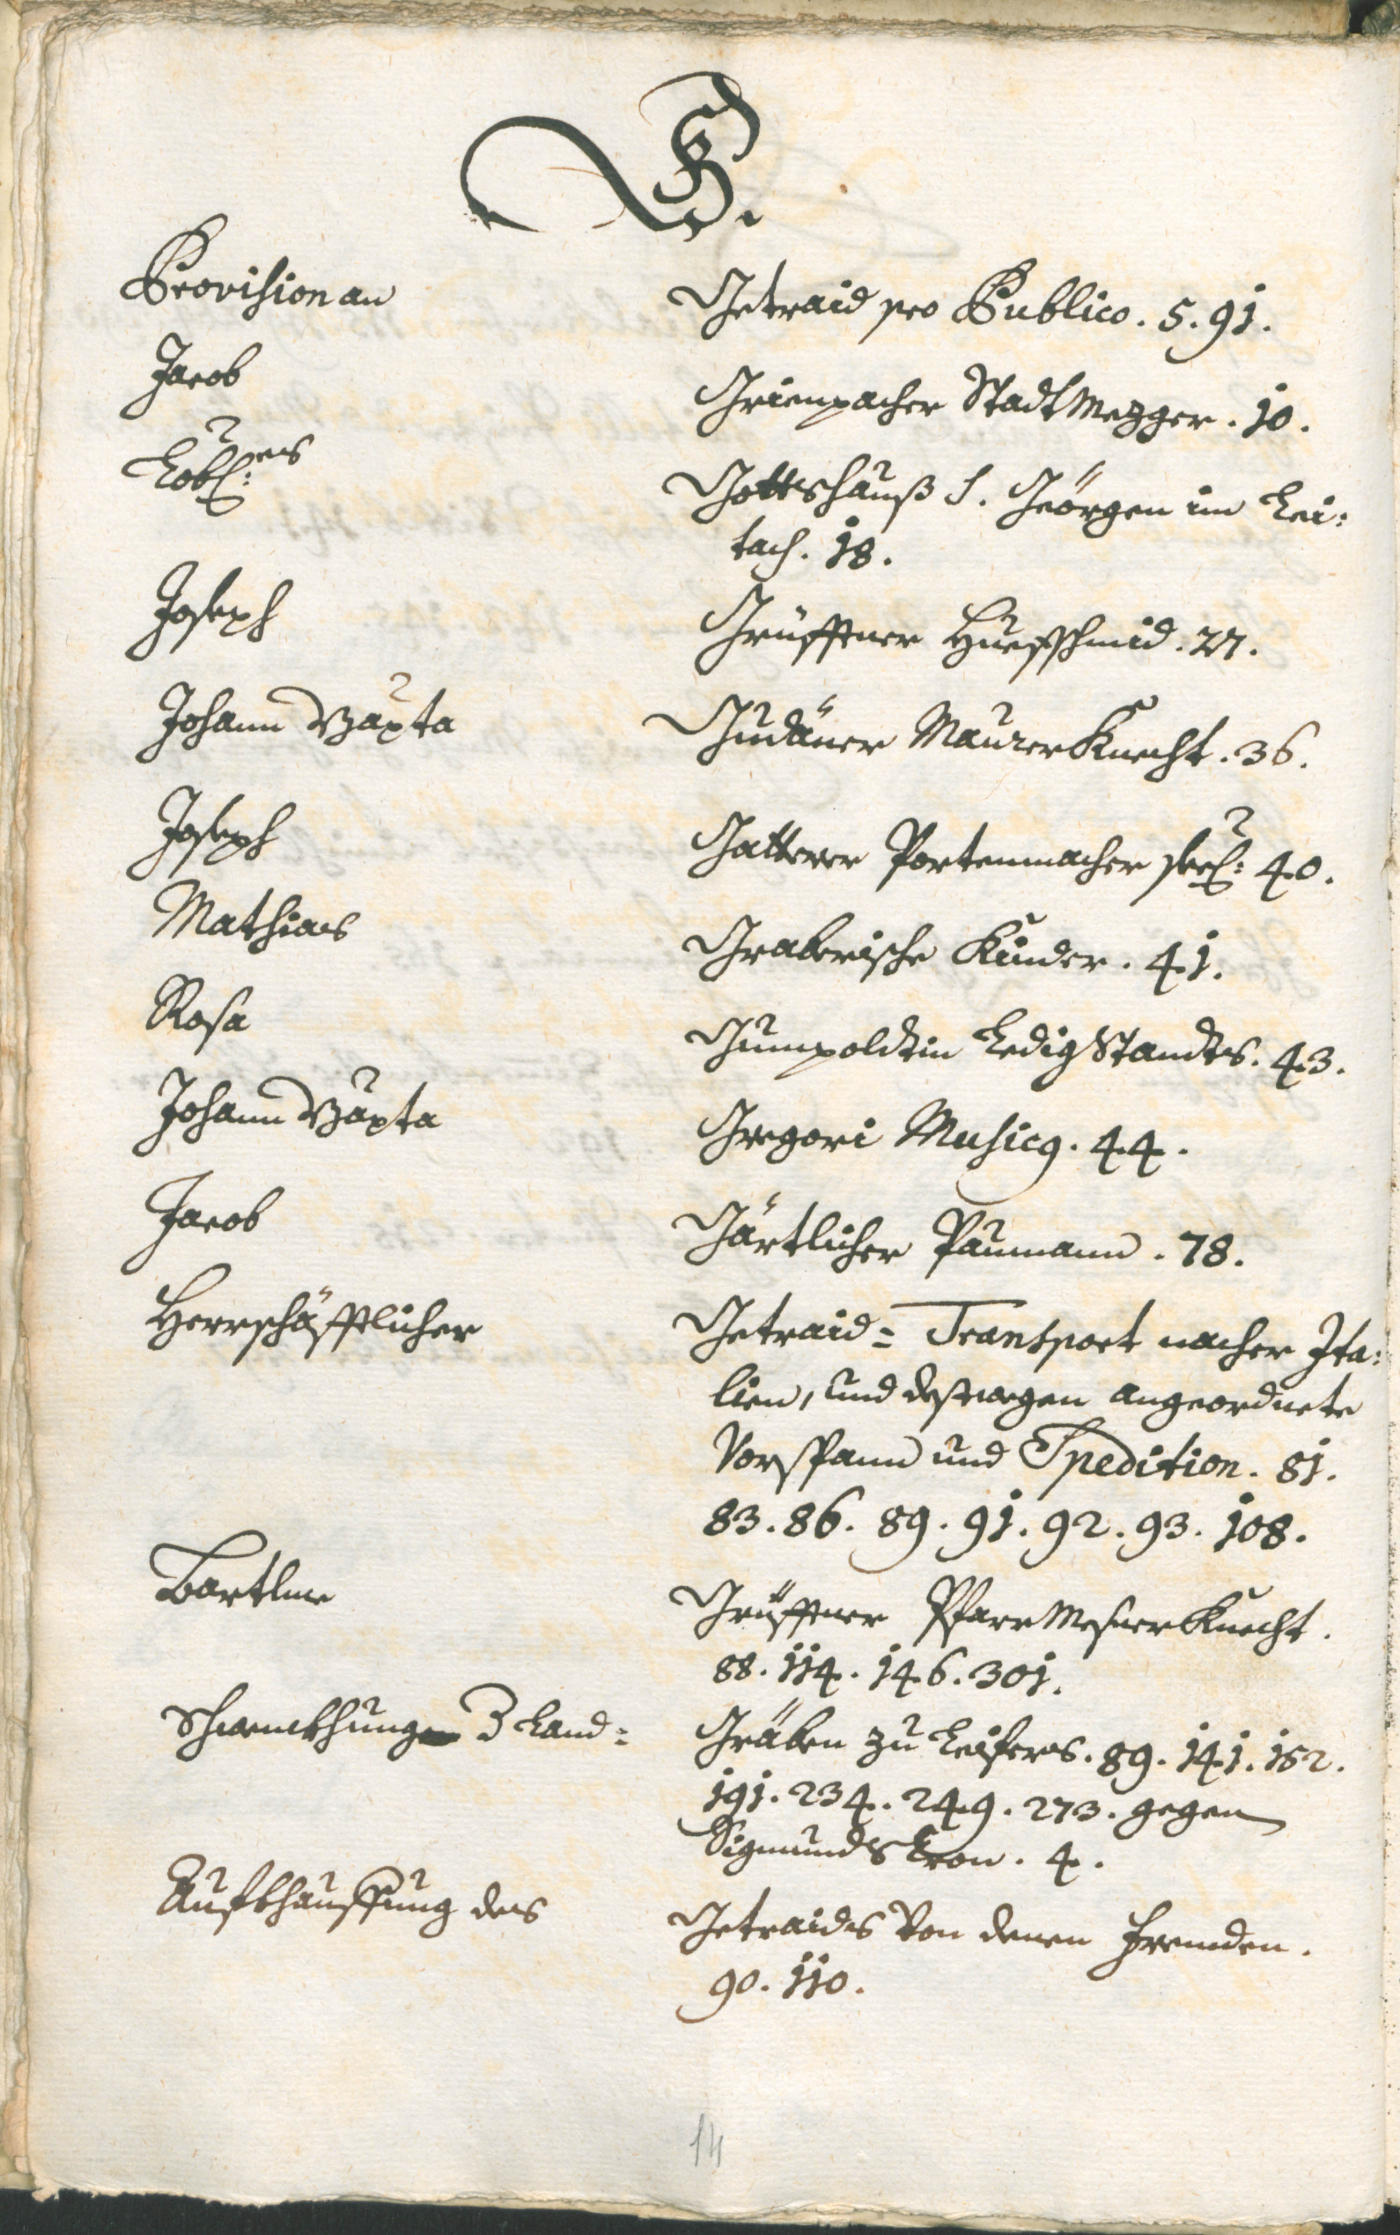 G.
Provision an Getraid pro Publico. 5. 91.
Jacob Grienpacher StadtMezger. 10.
Lobl: es Gottshauß S. Geörgen im Lei-
tach. 18.
Joseph Grüffner Huefschmid. 27.
Johann Bapta Gudäner MaurerKnecht. 36.
Joseph Gatterer Portenmacher seel: 40.
Mathias Graberische Kinder. 41.
Rosa Gumpoldtin Ledig Standts. 43.
Johann Bapta Gregori Musicq. 44.
Jacob Gärtlicher Paumann. 78.
Herrschäfftlicher Getraid= Transport nacher Ita-
lien, und deßwegen angeordnete
Vorspann und Spedition. 81.
83. 86. 89. 91. 92. 93. 108.
Bartlme Grüffner PfarrMesnerKnecht.
88. 114. 146. 301.
Schwenckhung 3 Land= Gräben zu Leifers. 89. 141. 152.
191. 234. 249. 273. gegen
Sigmunds Cron. 4.
Aufkhauffung des Getraids Von denen Frembden.
90. 110.
14